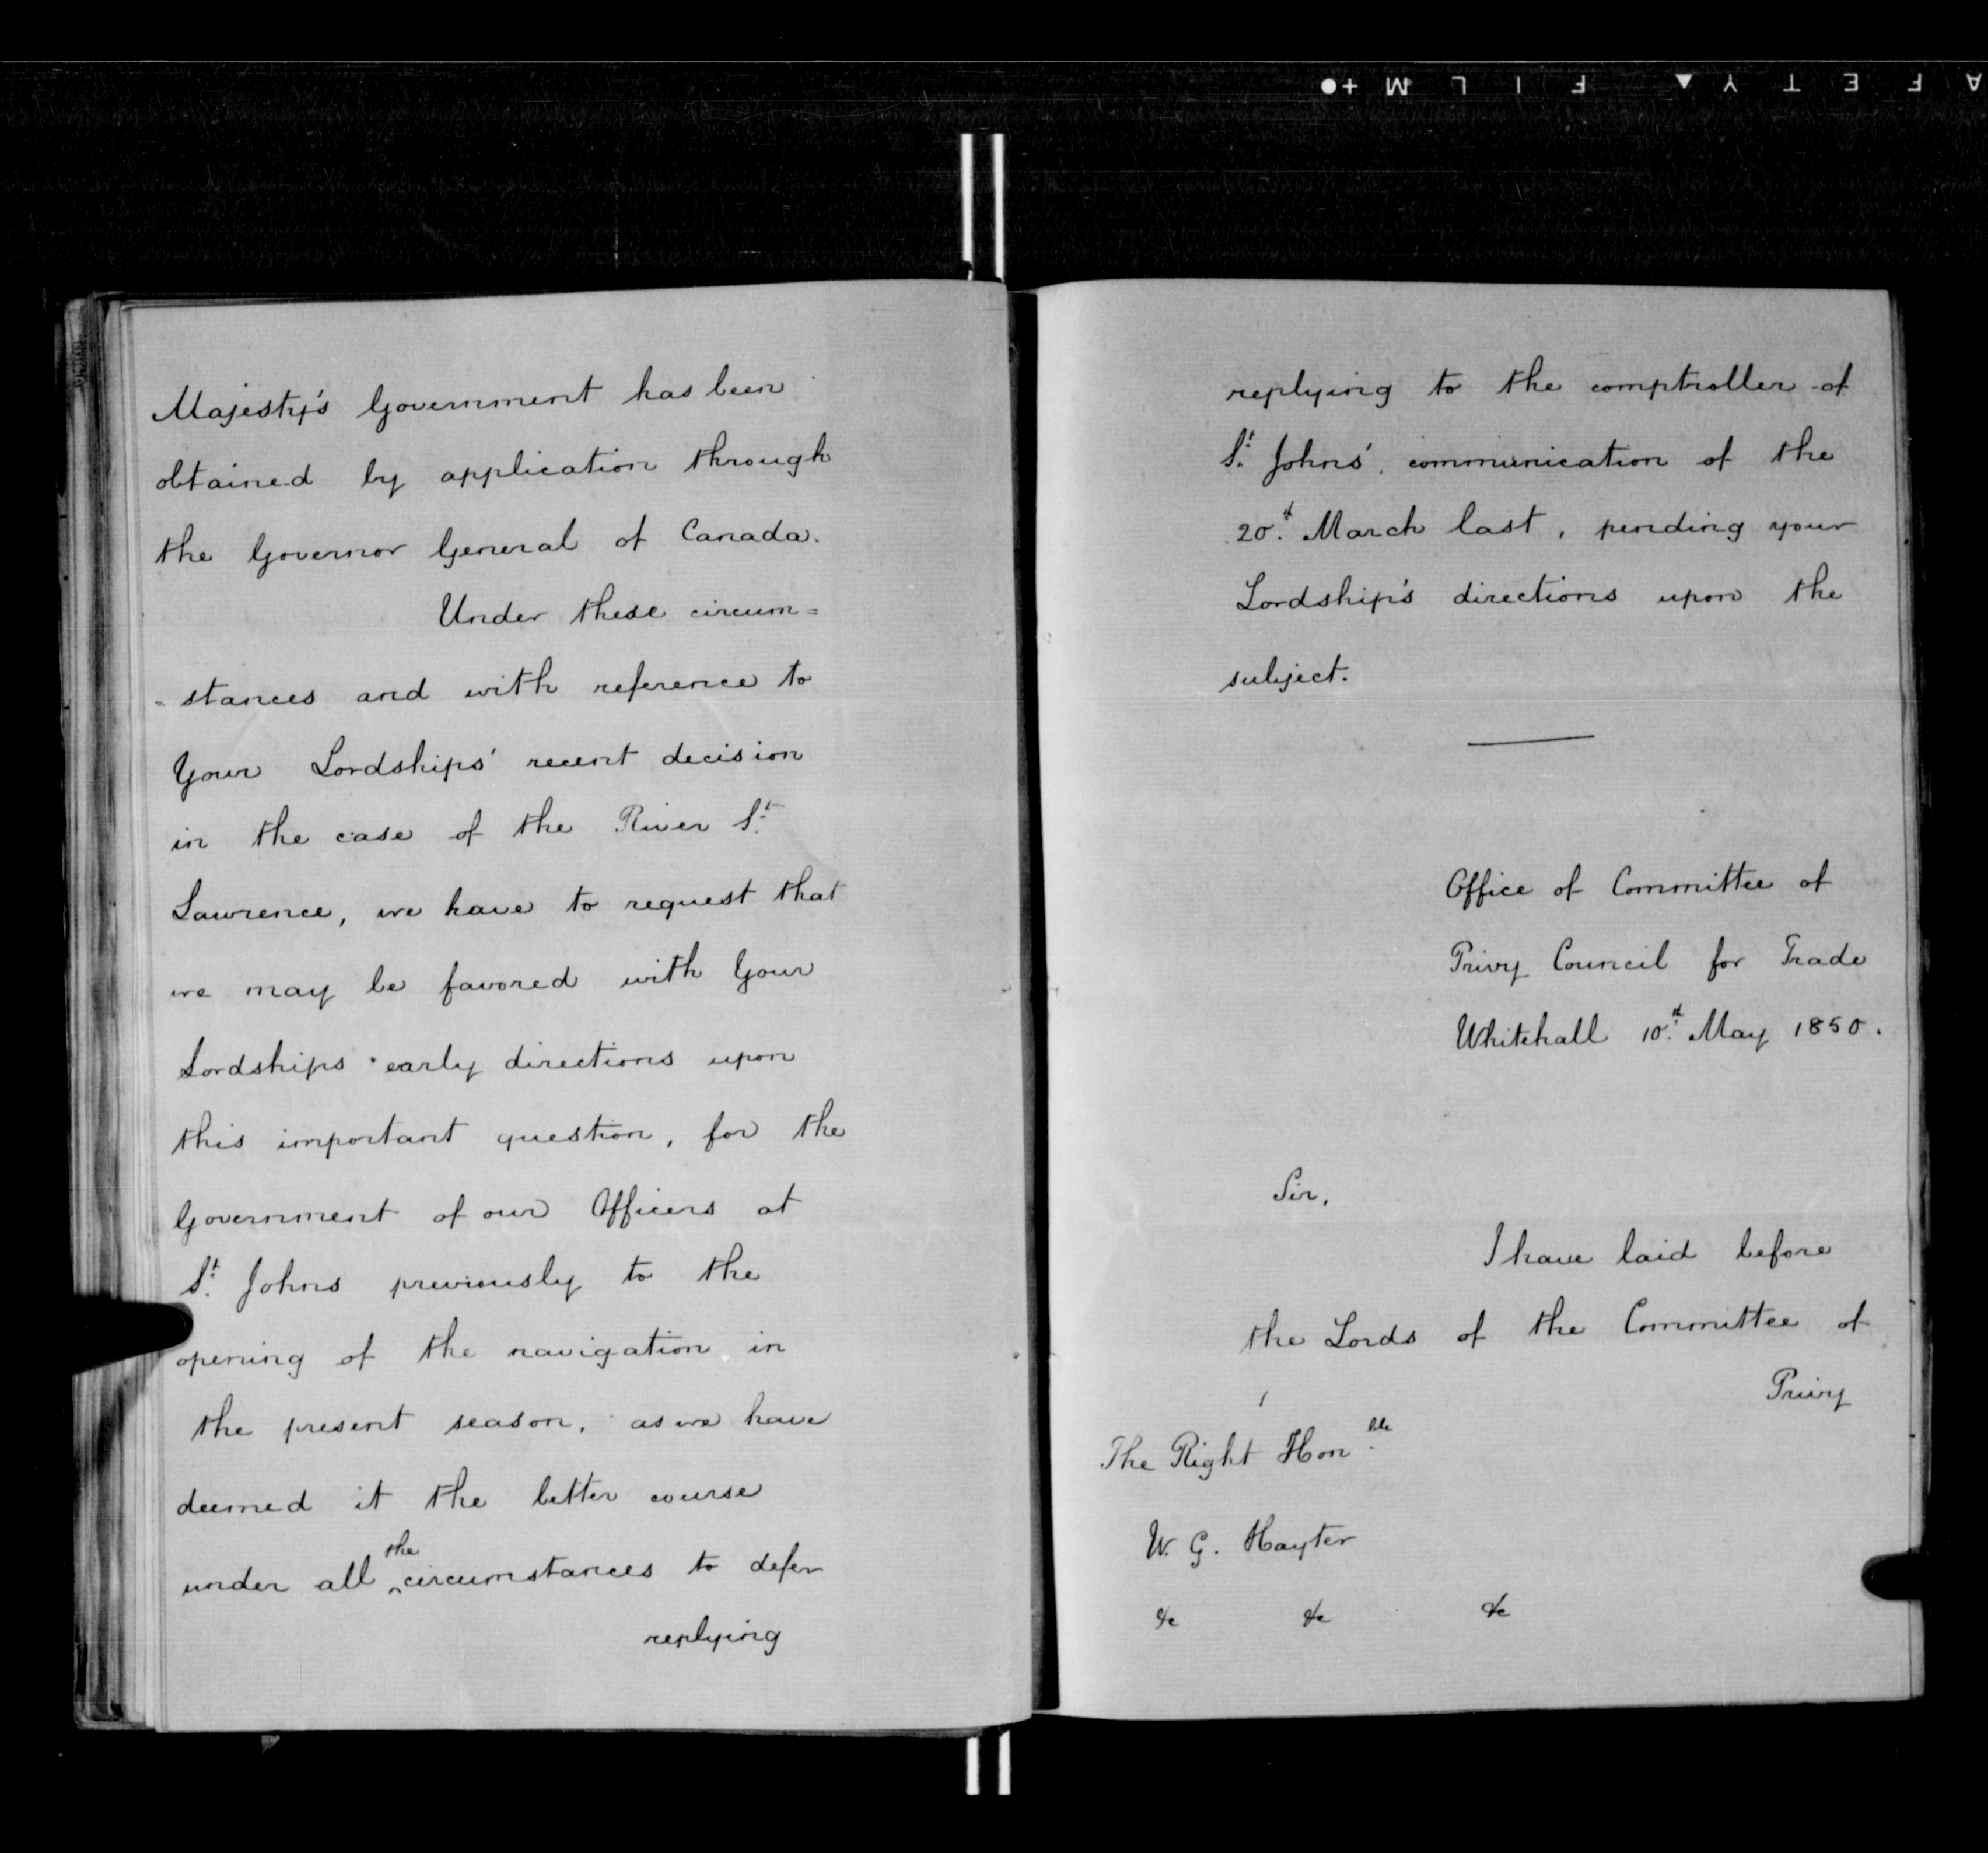 AFETY▲ FILM +●
Majesty's Government has been
obtained by application through
the Governor General of Canada.
Under these circum=
=stances and with reference to
Your Lordships' recent decision
in the case of the River St.
Lawrence, we have to request that
we may be favored with Your
Lordships early directions upon
this important question, for the
Government of our Officers at
St. Johns previously to the
opening of the navigation in
the present season, as we have
deemed it the better course
under all ^the circumstances to defer
replying
replying to the comptroller of
St. Johns' communication of the
20th. March last, pending your
Lordship's directions upon the
subject.
Office of Committee of
Privy Council for Trade
Whitehall 10th. May 1850.
Sir,
I have laid before
the Lords of the Committee of
Privy
The Right Honble.
W. G. Hayter
&c &c &c